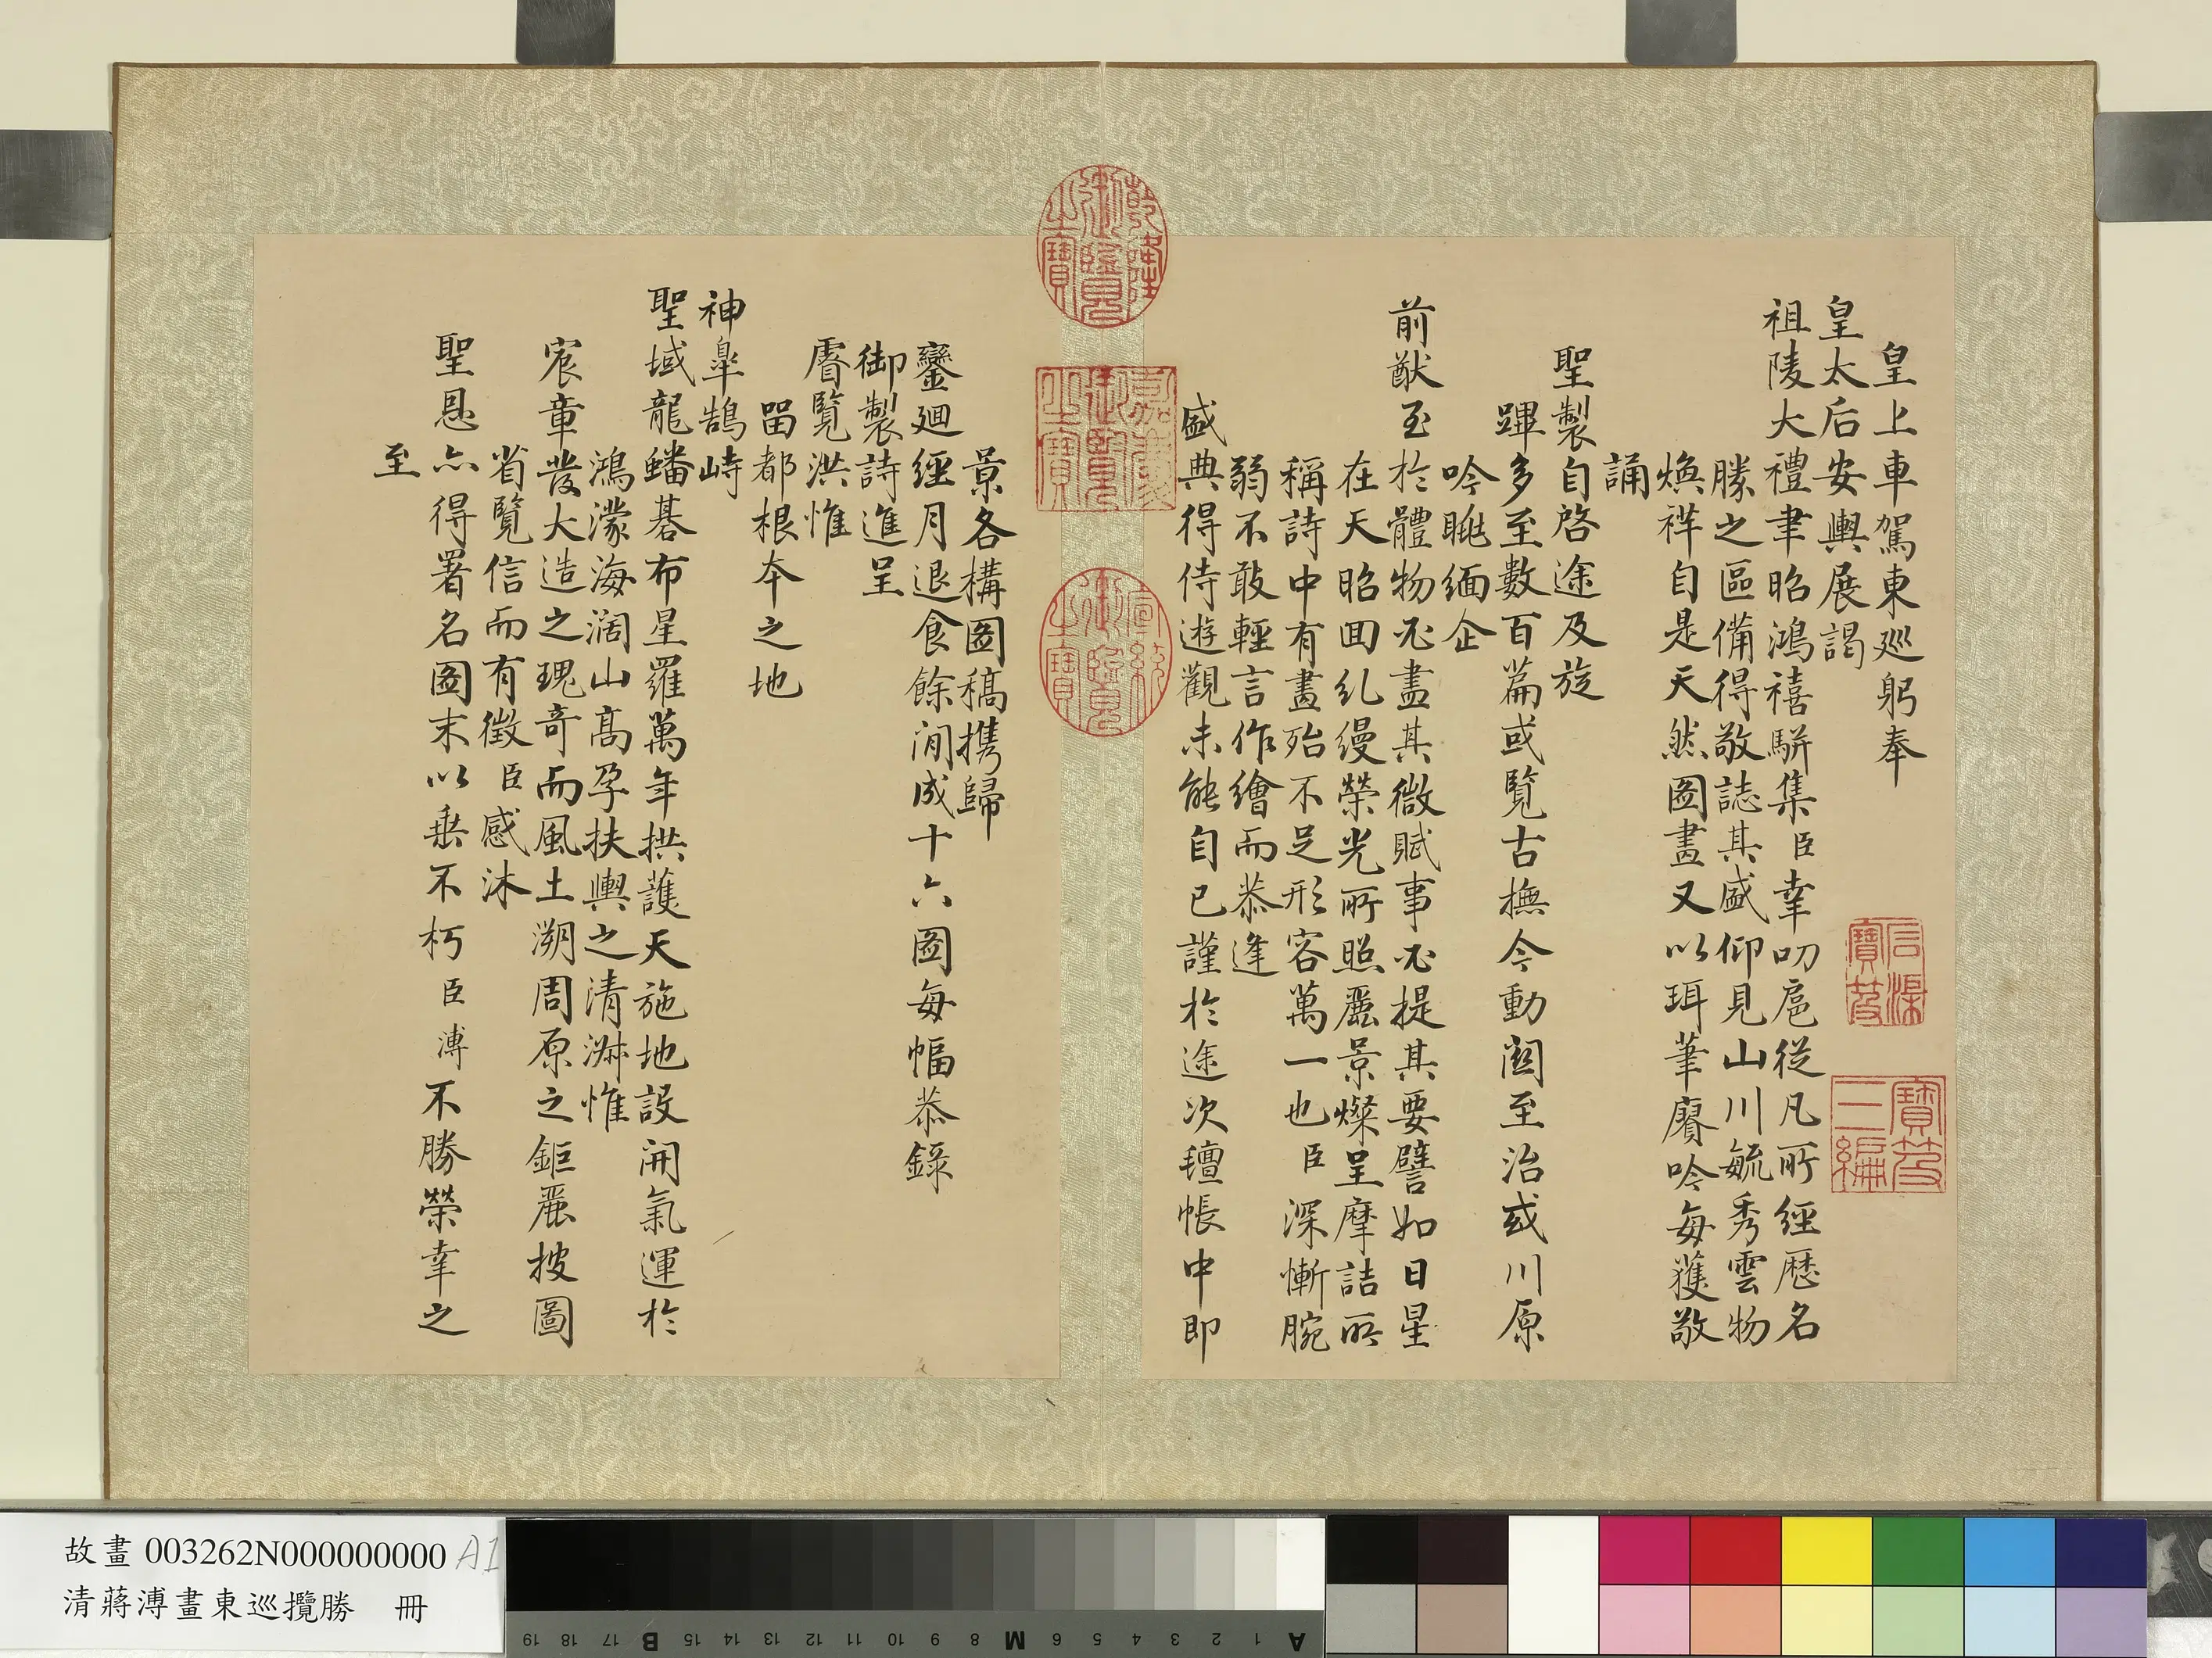 皇上車駕東巡躬奉
皇太后安輿展謁
祖陵大禮聿昭鴻禧駢集臣幸叨扈從凡所經歷名
勝之區備得敬誌其盛仰見山川毓秀雲物
煥祥自是天然圖畫又以珥筆賡吟每獲敬
誦
聖製自啓途及旋
蹕多至數百篇或覽古撫今動關至治或川原
吟眺緬企
前猷至於體物必盡其微賦事必提其要譬如日星
在天昭回糺縵榮光所照麗景燦呈摩詰所
稱詩中有畫殆不足形容萬一也臣深慚腕
弱不敢輕言作繪而恭逢
盛典得侍遊觀未能自已謹於途次氊帳中即
景各構圖稿携歸
鑾迴經月退食餘閒成十六圖每幅恭錄
御製詩進呈
睿覽洪惟
畱都根本之地
神臯鵠峙
聖域龍蟠碁布星羅萬年拱護天施地設開氣運於
鴻濛海濶山高孕扶輿之清淑惟
宸章發大造之瑰奇而風土溯周原之鉅麗披圖
省覽信而有徵臣感沐
聖恩亦得署名圖末以垂不朽臣溥不勝榮幸之
至
乾隆御覽之寶
嘉慶御覽之寶
宣統御覽之寶
石渠寶笈
寶笈三編
故畫003262N000000000 A1
清蔣溥畫東巡攬勝 冊
A 1 2 3 4 5 6 M 8 9 10 11 12 13 14 15 B 17 18 19